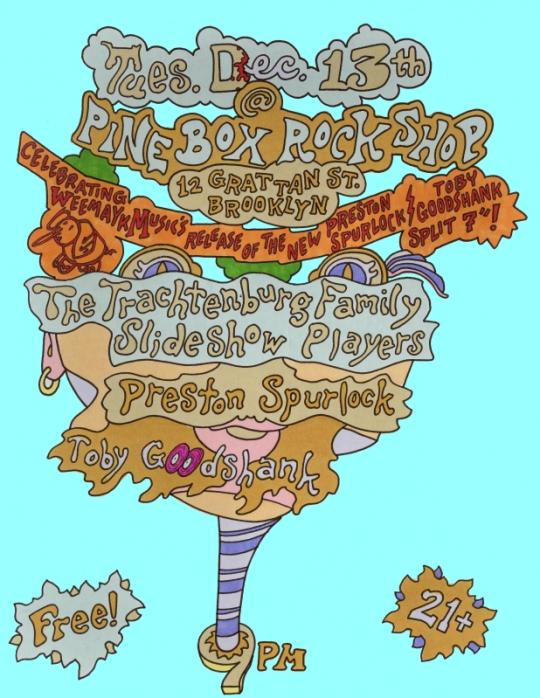 Tues. Dec. 13th
@
PINE BOX ROCK SHOP
12 GRATTAN ST.
BROOKLYN
CELEBRATING
WEEMAYKMUSIC'S
RELEASE OF THE NEW
PRESTON
SPURLOCK
TOBY
GOODSHANK
SPLIT 7"!
The Trachtenburg Family
Slideshow Players
Preston Spurlock
Toby Goodshank
Free!
21+
9 PM